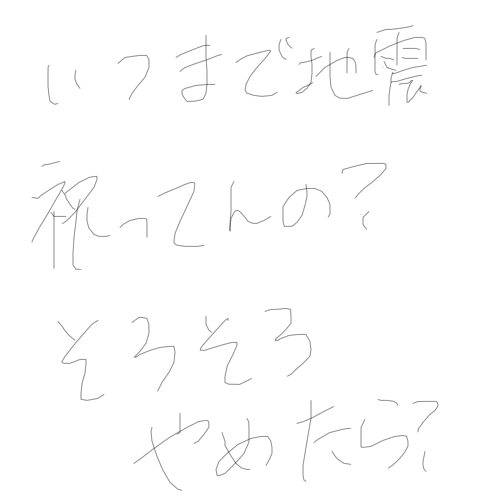 いつまで地震
祝ってんの?
そろそろ
やめたら?